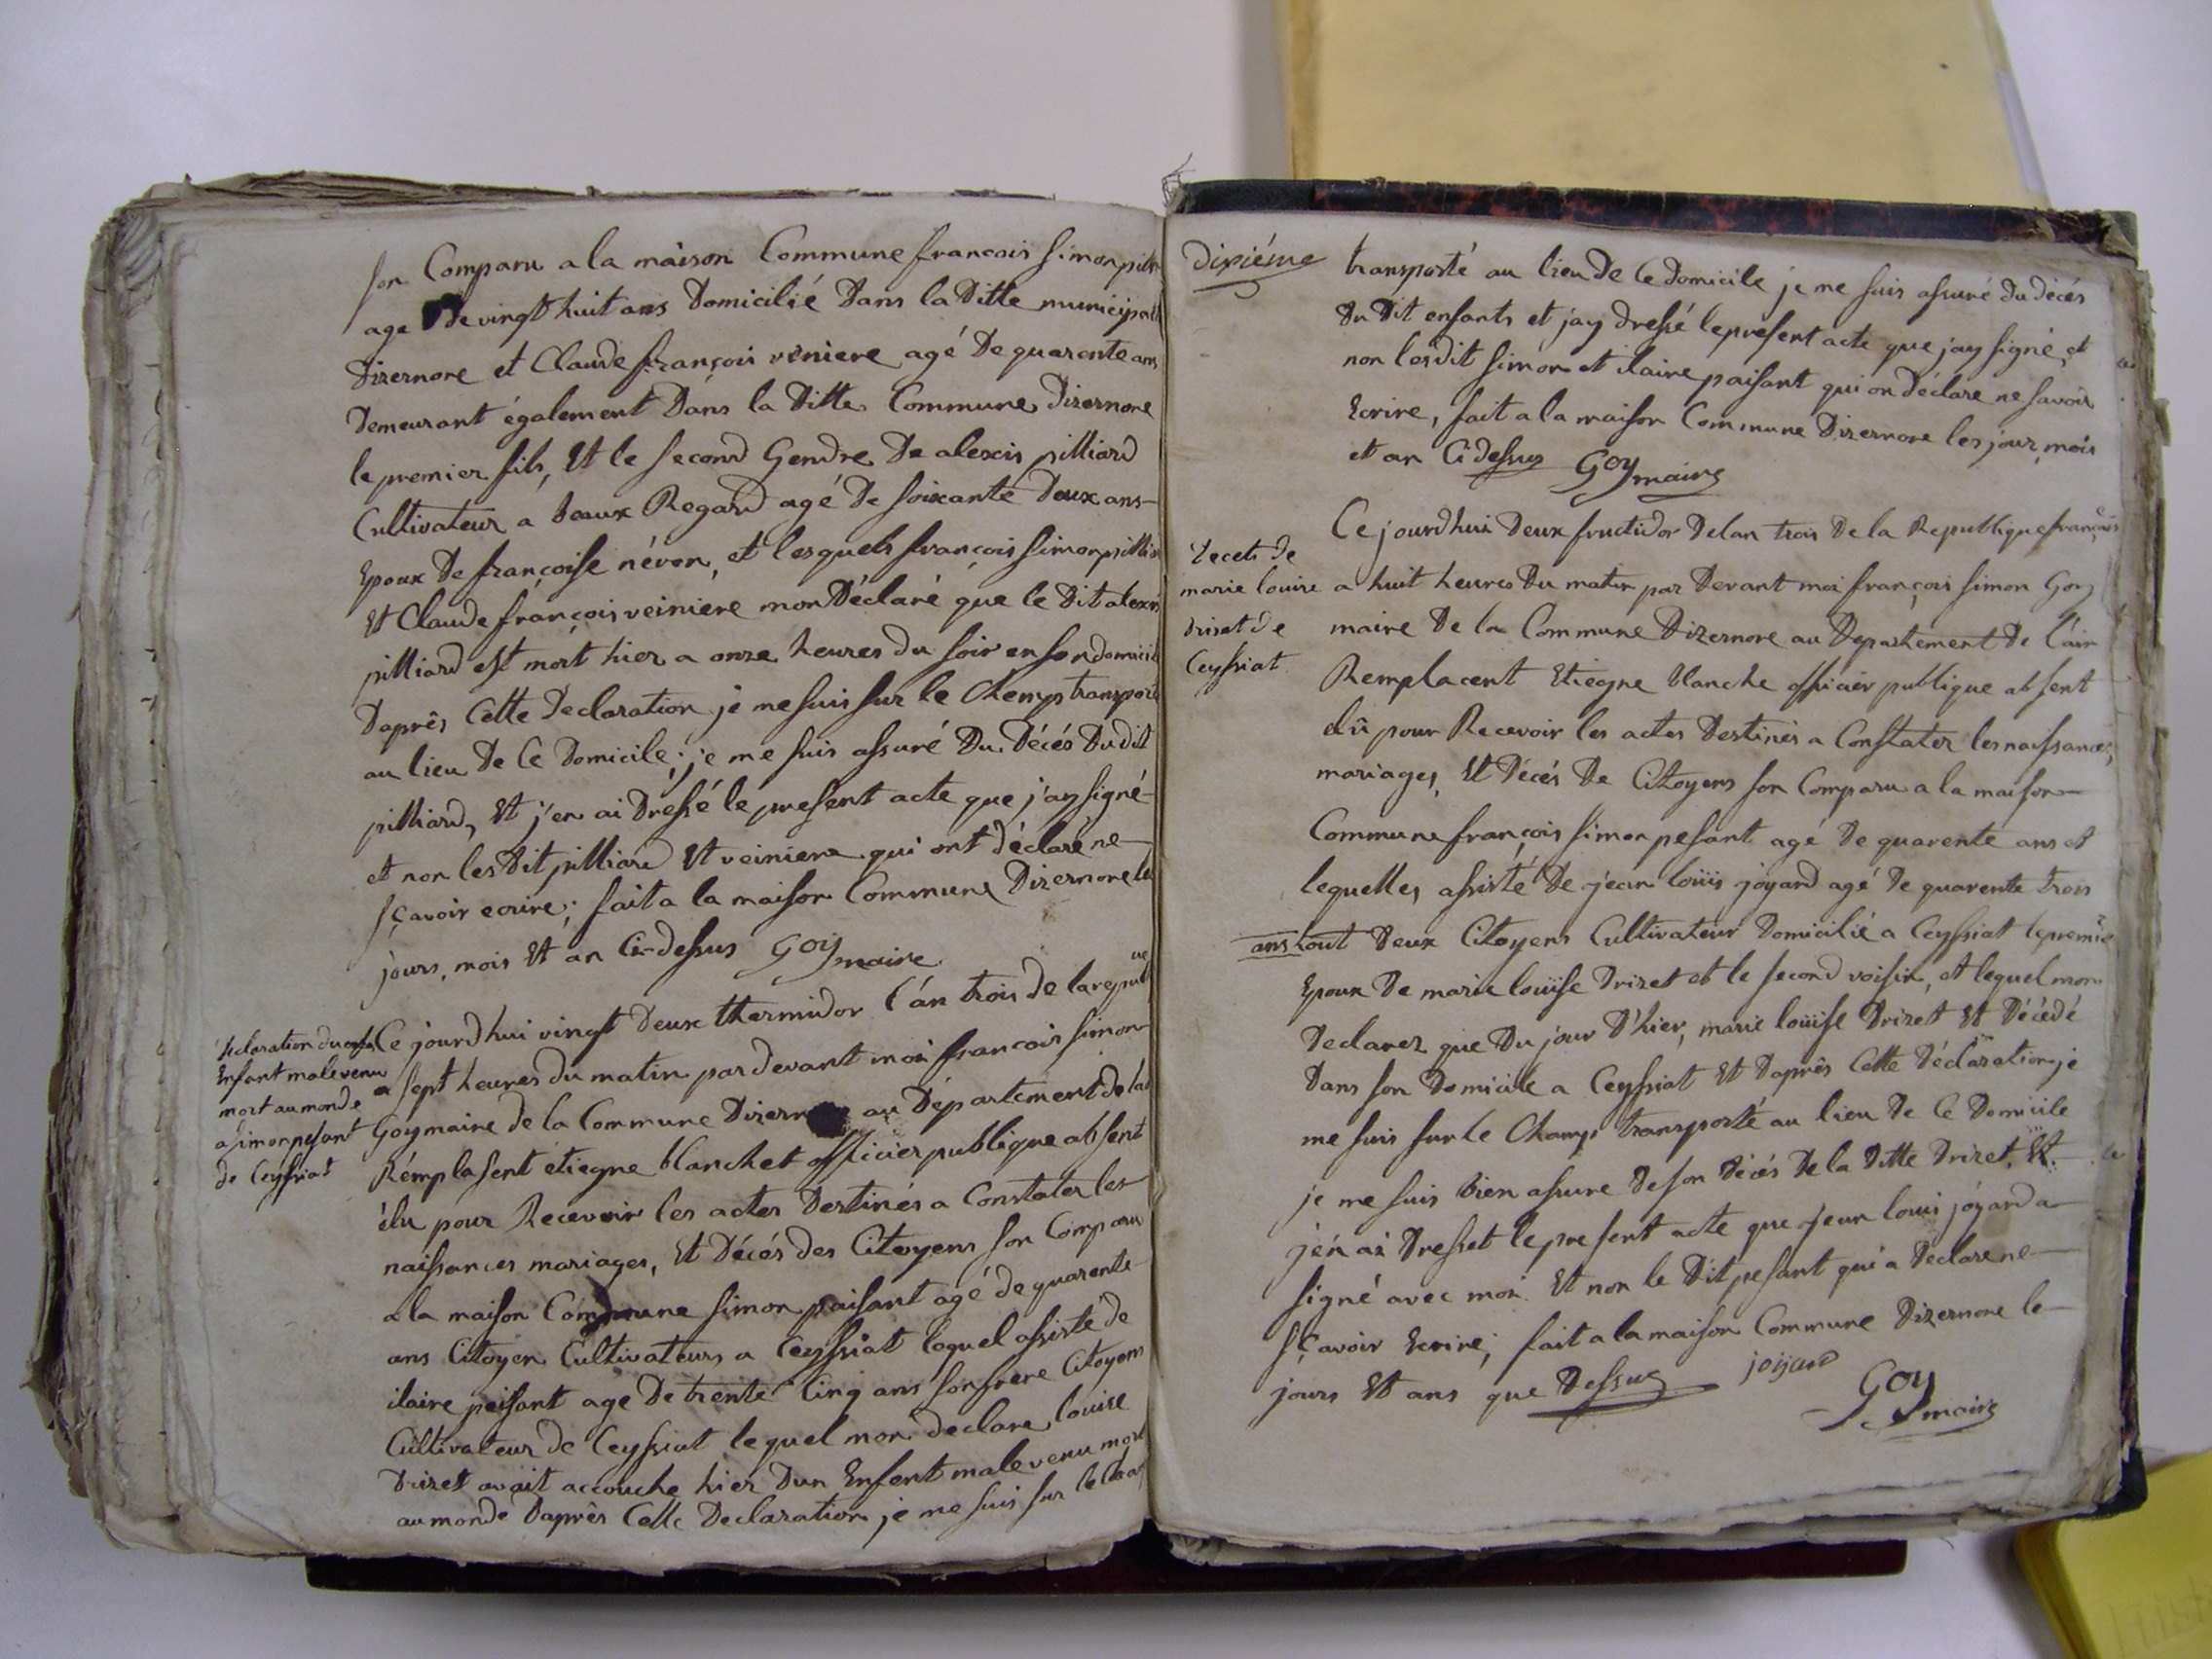 son Comparu a la maison Commune francois Simon pill
age de vingt huit ans Domicilié Dans la Ditte municipall
Dizernore et Claude françois veniere agé De quarente ans
Demeurant également Dans la Ditte Commune Dizernore
le premier fils, Et le second Gendre De alexis pilliard
Cultivateur a beaux Regard agé De soixante Deux ans
Epoux De françoise névon, et lesquels françois Simon pillia
Et Claude françois veiniere mon Déclaré que le Dit alexis
pilliard est mort hier a onze heures du soir en son domicil
Daprês Cette Declaration je me suis sur le Chemps transport
au lieu De Ce Domicile; je me suis assuré Du Décés Du dit
pilliard, Et j'en ai Dressé le present acte que j'ay signé
et non les Dit pilliard Et veiniere qui ont déclaré ne
sçavoir ecrire; fait a la maison Commune Dizernore le
jours, mois Et an Ci-dessus Goy maire
Declaration du
Enfant male venu
mort au monde
a Simon pesant
de Ceyssiat
Ce jourdhui vingt Deux thermidor l'an trois de la republ
a sept heures du matin par devant moi francois simon
Goy maire de la Commune Dizern au Département de la
Remplasent étiegne blanchet officier publique absent
élu pour Recevoir les actes Destinés a Constater les
naissances mariages, Et Décés des Citoyens son Comparu
a la maison Commune Simon paisant agé de quarente
ans Citoyen Cultivateurs a Ceyssiat lequel assisté de
ilaire peisant age De trente Cinq ans son frere Citoyens
Cultivateur de Ceyssiat lequel mon declare louise
Drizet avait accouche hier Dun Enfent male venu mort
au monde Daprês Cette Declaration je me suis sur le
Dixiéme
transporté au lieu De Ce Domicile je me suis assuré du décés
Du Dit enfants et jay dressé le present acte que jay signé, et
non lesdit Simon et ilaire paisant qui on Déclare ne savoir
Ecrire, fait a la maison Commune Dizernore les jour, mois
et an Ci dessus Goy maire
Decets de
marie louise
drizet de
Ceyssiat
Ce jourdhui Deux fructidor De lan trois De la Republique français
a huit heures Du matin par Devant moi françois Simon Goy
maire De la Commune Dizernore au Departement De l'ain
Remplacent Etiegne blanche officier publique absent
élû pour Recevoir les actes Destinés a Constater les naissances,
mariages, Et Décés De Citoyens son Comparu a la maison
Commune françois Simon pesant agé De quarente ans et
lequelles assisté De jean loüis joyard agé De quarente trois
ans tout Deux Citoyens Cultivateur Domicilié a Ceyssiat le premie
Epoux De marie loüise Drizet et le second voisin, et lequel mon
Declarez que Du jour D'hier, marie loüise Drizet Et Décédé
Dans son Domicile a Ceyssiat Et Daprês Cette Déclaration je
me suis sur le Champs transporté au lieu De Ce Domicile
je me suis bien assure De son Décés De la Ditte Drizet, Et
j'én ai Dresset le present acte que jean louis joyard a
signé avec moi Et non le Dit pesant qui a Declare ne
sçavoir Ecrire; fait a la maison Commune Dizernore le
jours Et ans que Dessus joijard
Goy
maire